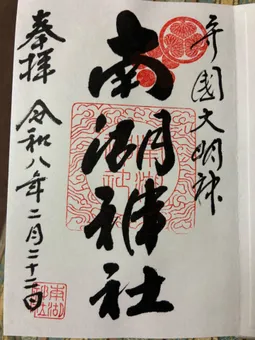 守國大明神
南湖神社
奉拝
令和八年二月二十二日